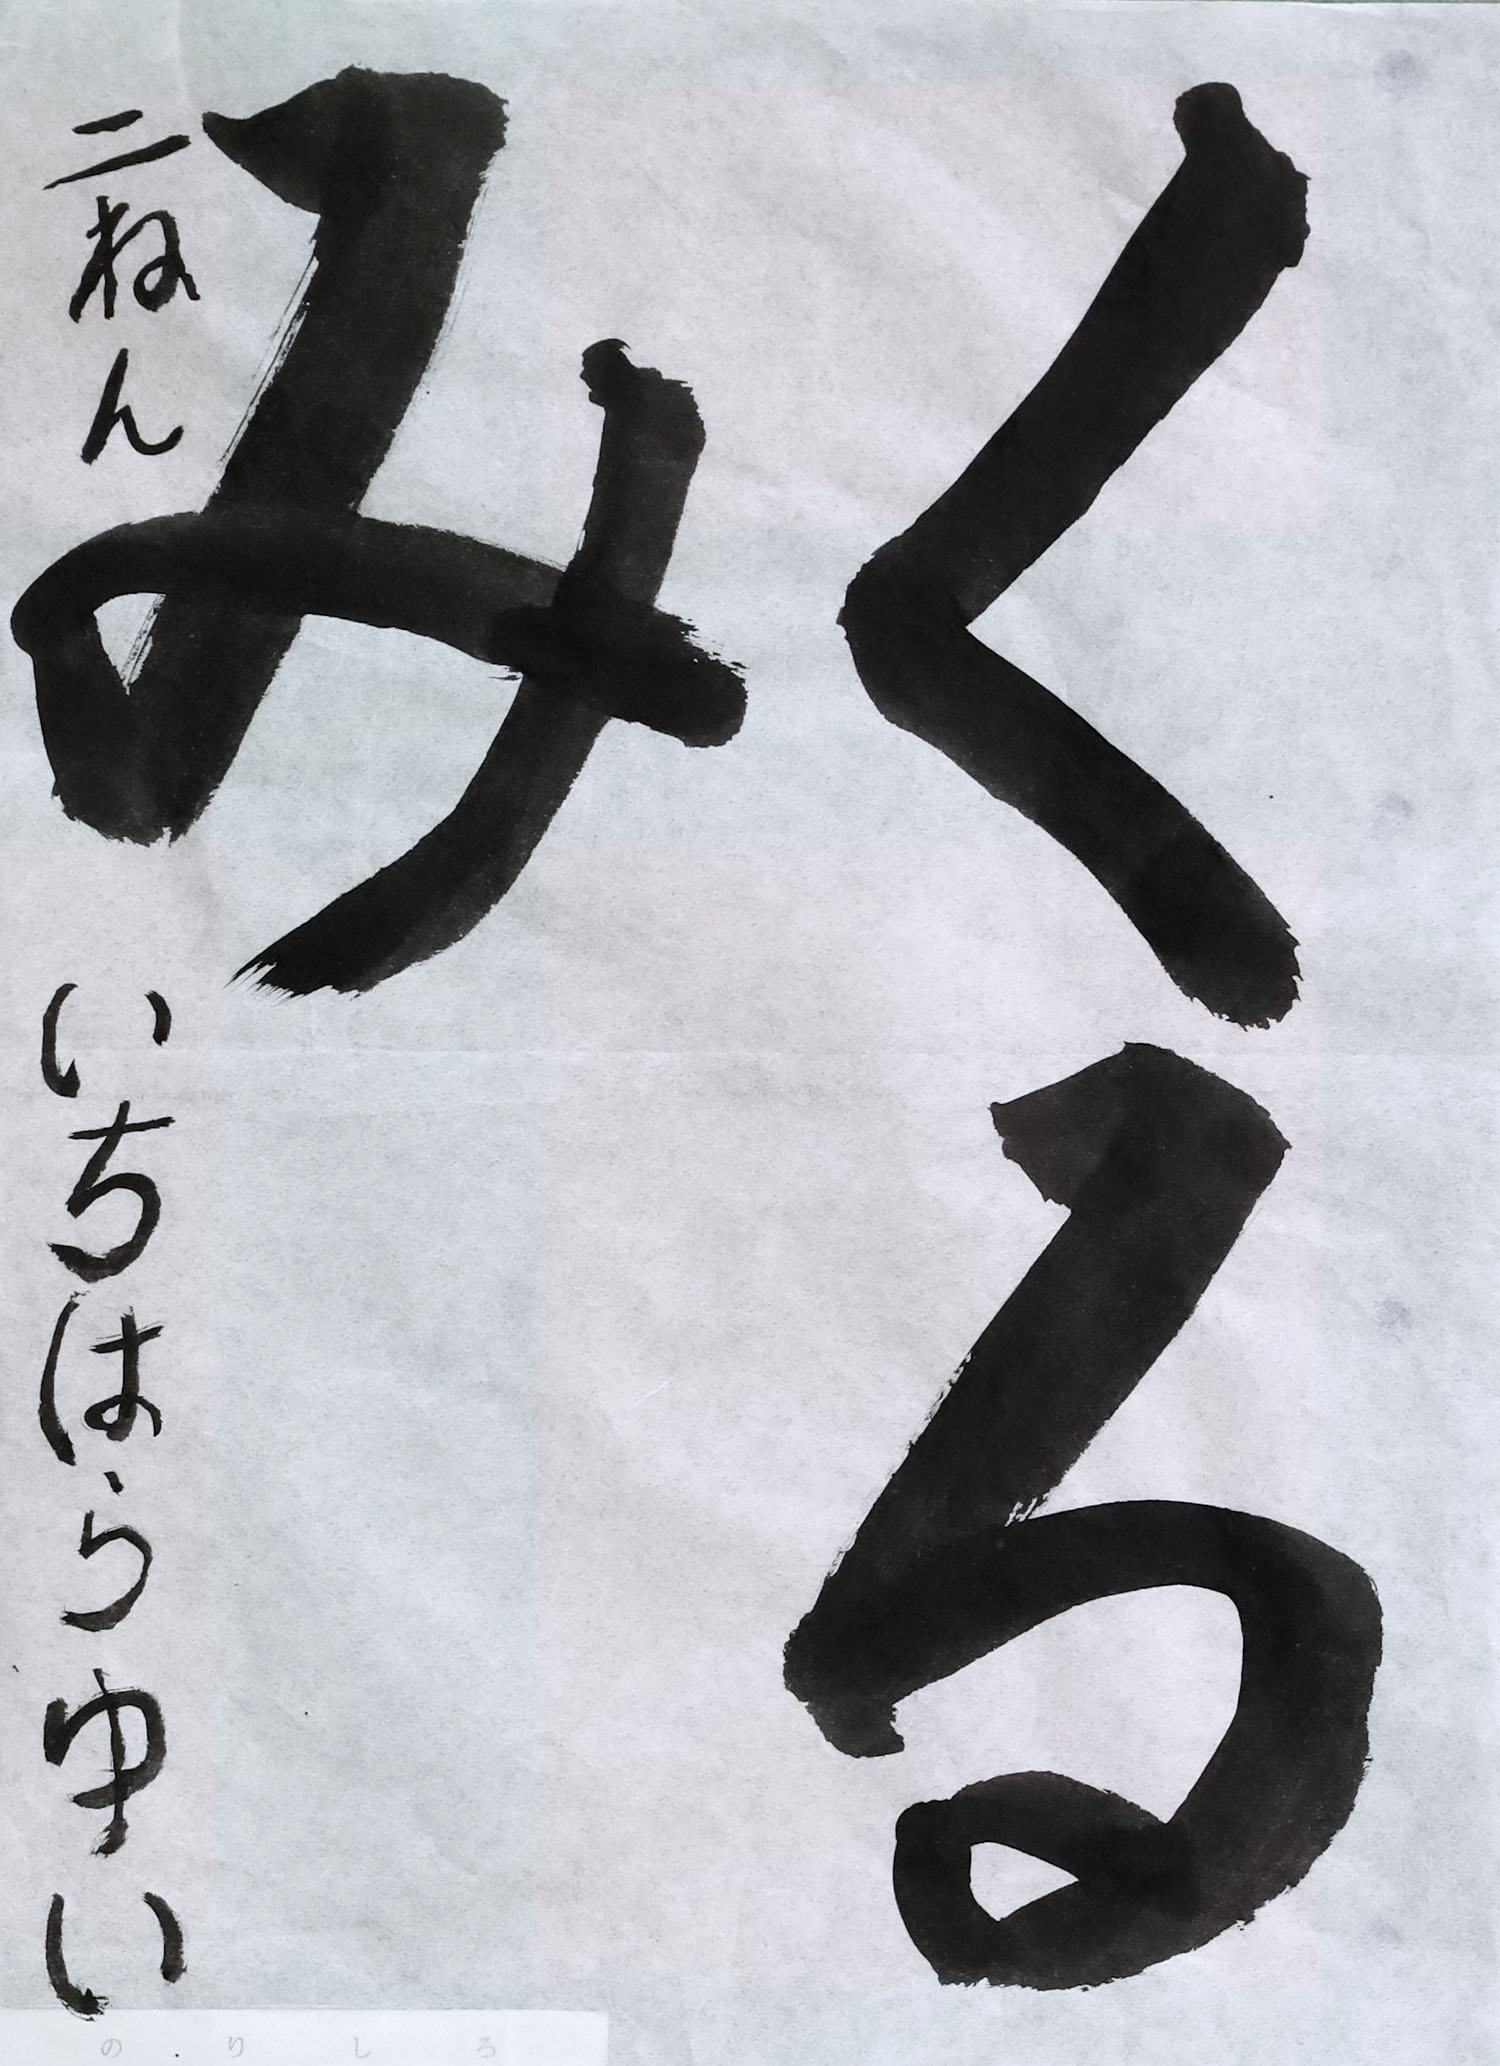 くる
み
二ねん いちはらゆい
のりしろ